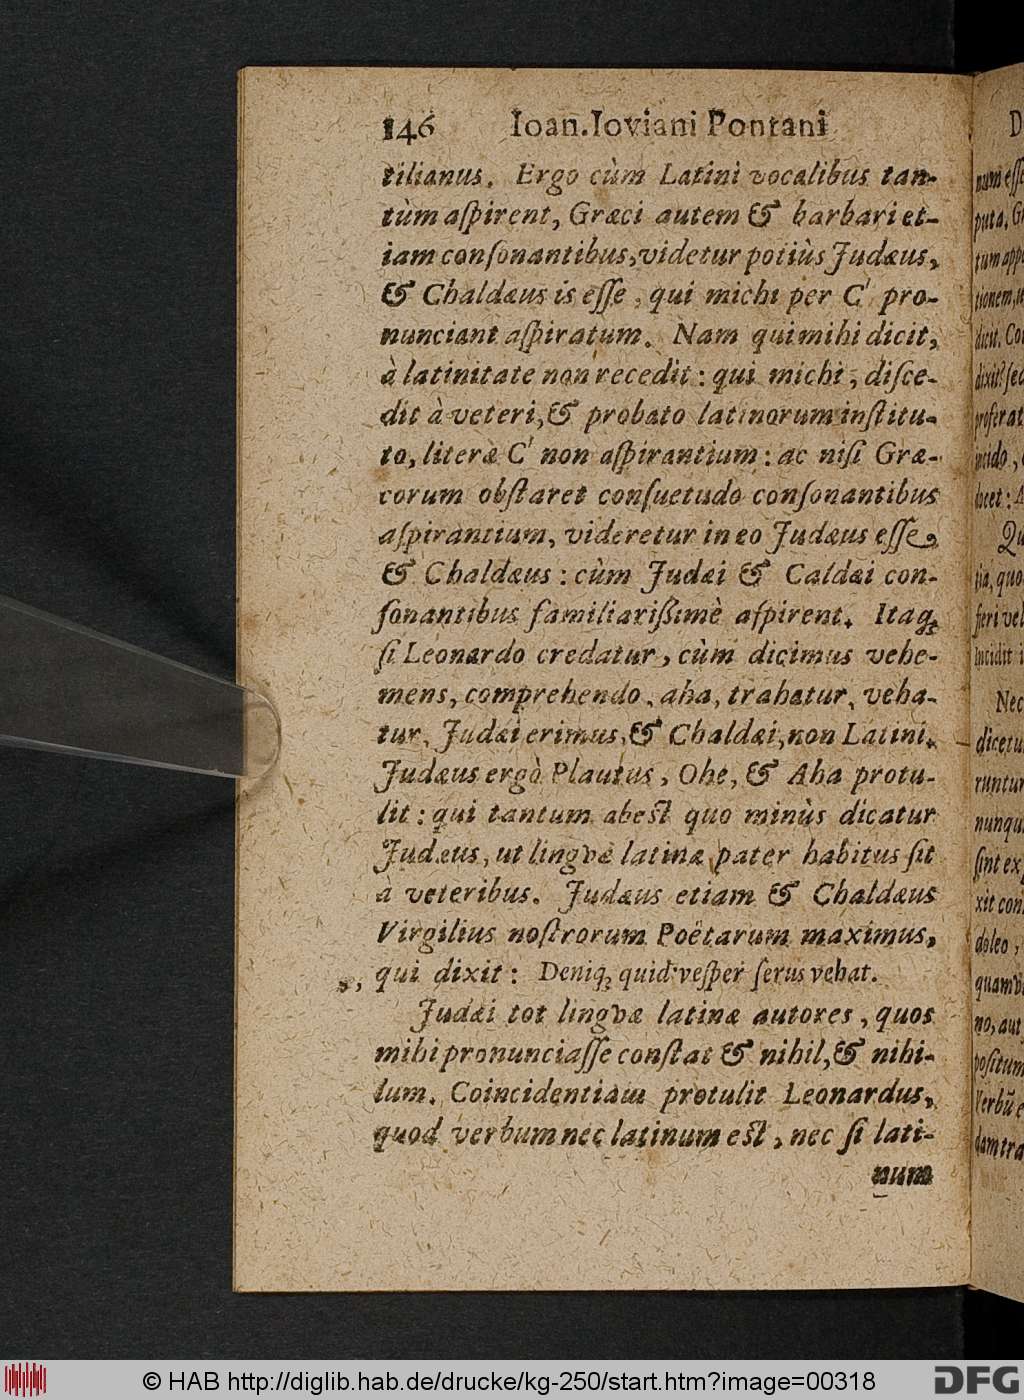 146 Ioan. Ioviani Pontani
tilianus. Ergo cùm Latini vocalibus tan-
tùm aſpirent, Græci autem & barbari et-
iam conſonantibus, videtur potiùs Judæus,
& Chaldæus is eſſe, qui michi per C pro-
nunciant aſpiratum. Nam qui mihi dicit,
à latinitate non recedit: qui michi, diſce-
dit à veteri, & probato latinorum inſtitu-
to, literæ C non aſpirantium: ac niſi Græ-
corum obſtaret conſuetudo conſonantibus
aſpirantium, videretur in eo Judæus eſſe,
& Chaldæus: cùm Judæi & Caldæi con-
ſonantibus familiarißimè aſpirent. Itaq;
ſi Leonardo credatur, cùm dicimus vehe-
mens, comprehendo, aha, trahatur, veha-
tur, Judæi erimus, & Chaldæi, non Latini.
Judæus ergò Plautus, Ohe, & Aha protu-
lit: qui tantum abeſt quo minùs dicatur
Judæus, ut lingvæ latinæ pater habitus ſit
à veteribus. Judæus etiam & Chaldæus
Virgilius noſtrorum Poëtarum maximus,
qui dixit: Deniq; quid veſper ſerus vehat.
Judæi tot lingvæ latinæ autores, quos
mihi pronunciaſſe conſtat & nihil, & nihi-
lum. Coincidentiam protulit Leonardus,
quod verbum nec latinum eſt, nec ſi lati-
num
D
num eſſe
puta, G
tum app
tionem, u
dicit. Co
dixit? ſed
proferat
incido,
docet: A
Qu
tia, quo
fieri vel
Incidit i
Nec
dicetu
runtur
nunqu
ſint ex
xit con
doleo,
quam v
no, aut
poſitum
Verbũ e
dam tra
© HAB http://diglib.hab.de/drucke/kg-250/start.htm?image=00318
DFG